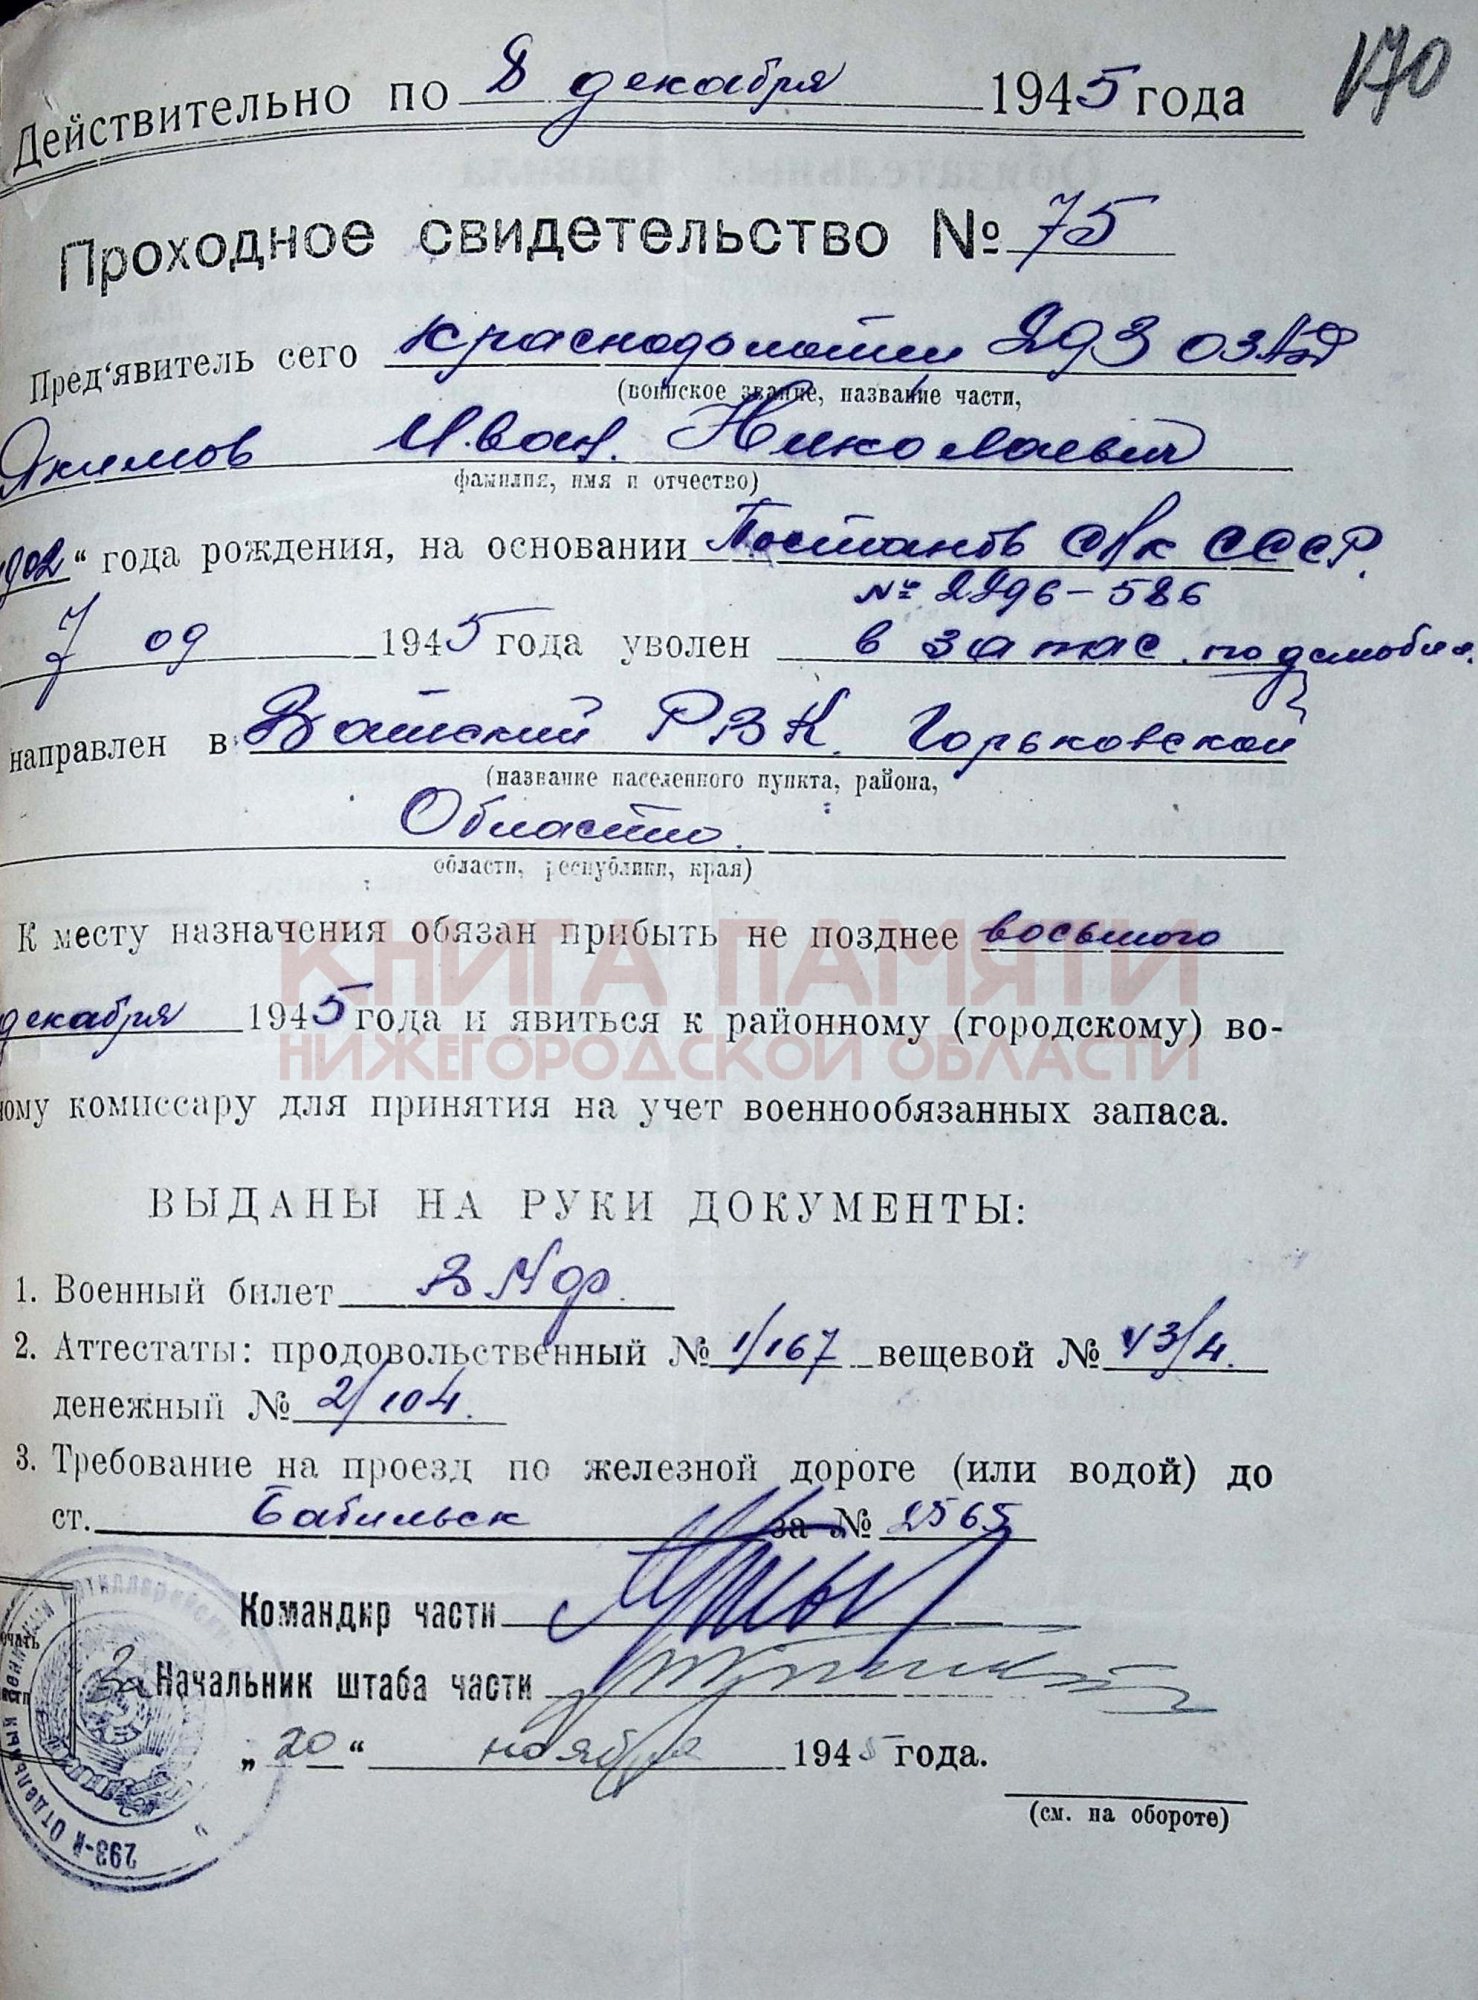 170
Действительно по 8 декабря 1945 года
Проходное свидетельство № 75
Пред‘явитель сего 293 ОЗАД
(воинское звание, название части,
Якимов Иван Николаевич
фамилия, имя и отчество)
1902“ года рождения, на основании Постанов СНК СССР.
№ 2296-586
7 09 1945 года уволен в запас по демобил.
направлен в Вачский РВК Горьковской
(название населенного пункта, района,
Области.
области, республики, края)
К месту назначения обязан прибыть не позднее восьмого
декабря 1945 года и явиться к районному (городскому) во-
ному комиссару для принятия на учет военнообязанных запаса.
КНИГА ПАМЯТИ
НИЖЕГОРОДСКОЙ ОБЛАСТИ
ВЫДАНЫ НА РУКИ ДОКУМЕНТЫ:
1. Военный билет
2. Аттестаты: продовольственный № 1/167 вещевой № 43/4.
денежный № 2/104.
3. Требование на проезд по железной дороге (или водой) до
ст. за № 2565
Командир части
За Начальник штаба части
„20“ ноября 1945 года.
(см. на обороте)
293-й Отдельный